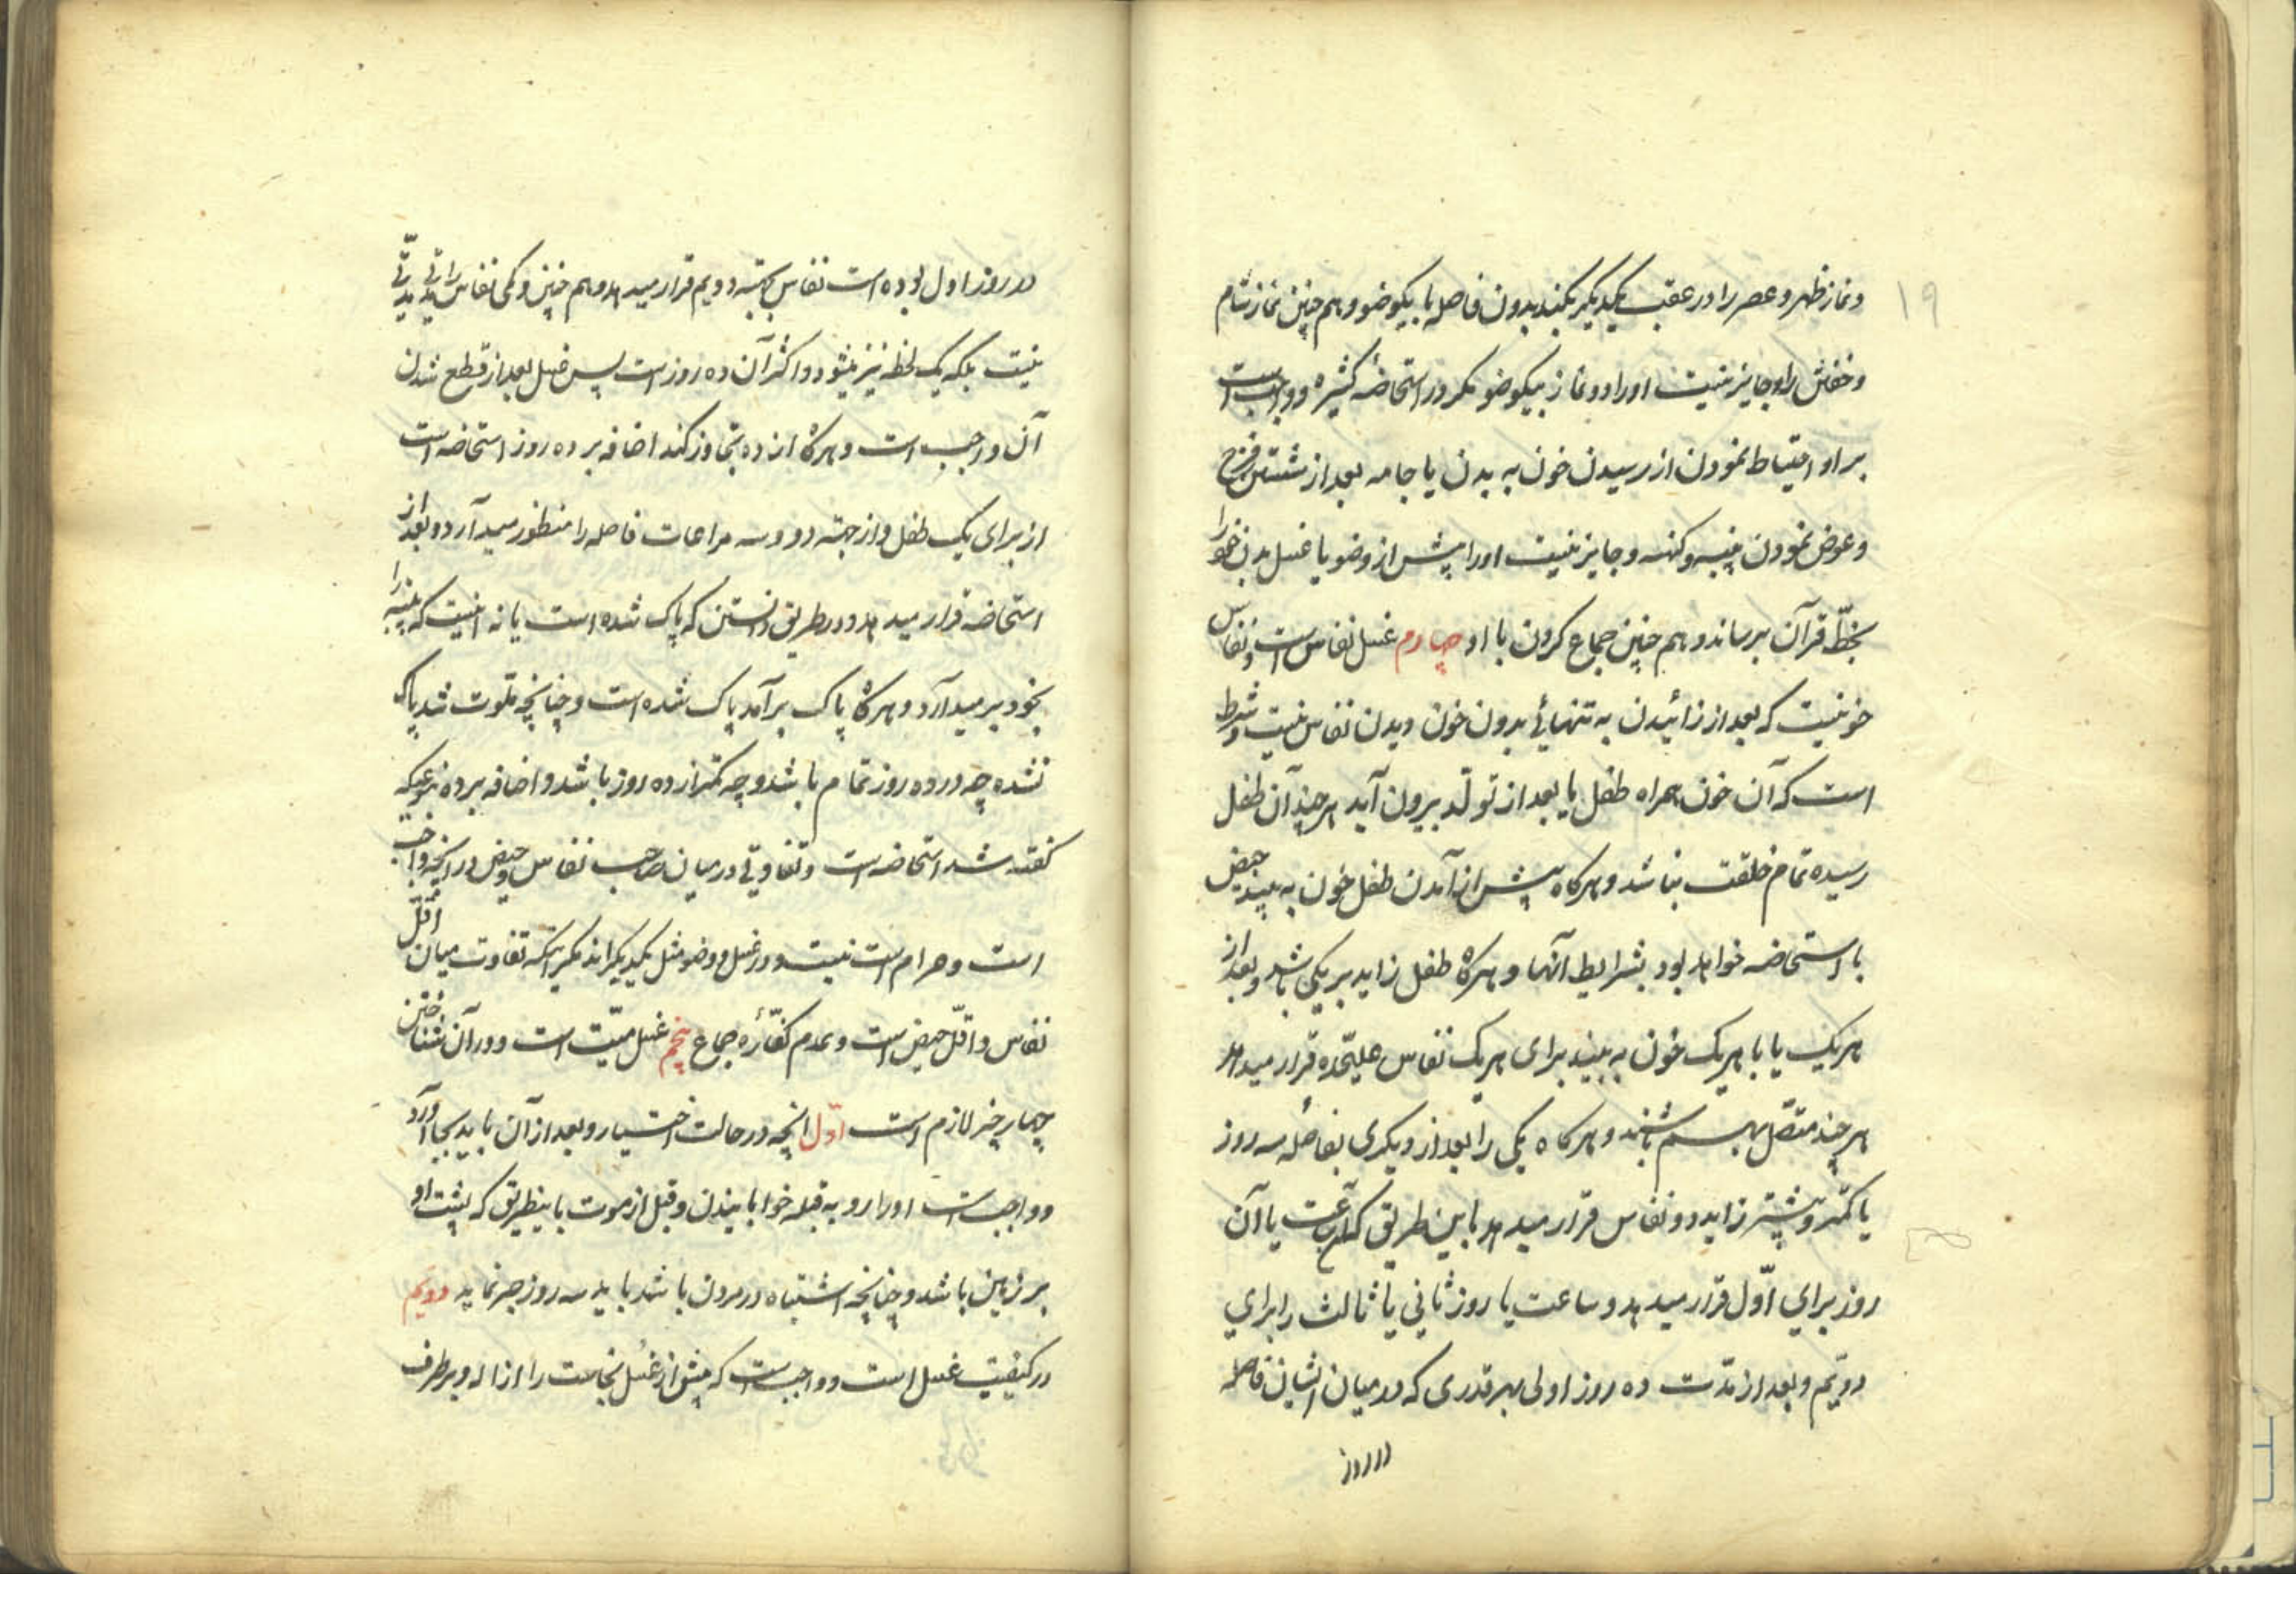 ۱۹
و نماز ظهر و عصر را در عقب یکدیگر بکند بدون فاصله با بیکوضو و هم چنین نماز شام
و خفتن را و جایز نیست او را دو نماز بیکوضو مگر در استحاضهٔ کثیره و واجبست
بر او احتیاط نمودن از رسیدن خون به بدن یا جامه بعد از شستن فرج
و عوض نمودن پنبه و کهنه و جایز نیست او را پیش از وضو یا غسل بدن خود را
بخطّ قرآن برساند و هم چنین جماع کردن با او چهارم غسل نفاس است و نفاس
خونیست که بعد از زائیدن به تنهائی بدون خون دیدن نفاس نیست و شرط
است که آن خون همراه طفل یا بعد از تولّد بیرون آید هر چند آن طفل
رسیده تمام خلقت نباشد و هرکاه پیش از آمدن طفل خون به بیند حیض
یا استحاضه خواهد بود بشرایط آنها و هرکاه طفل زاید بر یکی باشد و بعد از
هریک یا با هریک خون به بیند برای هریک نفاس علیحّده قرار میدهد
هر چند متصّل بهم باشند و هرکاه یکی را بعد از دیکری بفاصله سه روز
یا کمتر و بیشتر زاید دو نفاس قرار میدهد باین طریق که آن ساعت یا آن
روز برای اوّل قرار میدهد و ساعت یا روز ثانی یا ثالث را برای
دویّم و بعد از مدّت ده روز اولی بهر قدری که در میان ایشان فاصله
در روز
در روز اول بوده است نفاس بجهته دویم قرار میدهد و هم چنین و کمی نفاس را قدر مدّتی
نیست بلکه یک لحظه نیز میشود و اکثر آن ده روز است پس غسل بعد از قطع شدن
آن واجب است و هرکاه از ده تجاوز کند اضافه بر ده روز استحاضه است
از برای یک طفل و از جهته دو و سه مراعات فاصله را منظور میدآرد و بعد از
استحاضه قرار میدهد و در طریق دانستن که پاک شده است یا نه انیست که پنبه را
بخود بر میدآرد و هرکاه پاک برآمد پاک شده است و چنانچه ملّوث شد پاک
نشده چه در ده روز تمام باشد و چه کمتر از ده روز باشد و اضافه بر ده بنوعیکه
کفته شد استحاضه است و تفاوتی در میان صاحب نفاس و حیض در انچه واجب
است و حرام است نیست و در غسل و وضو مثل یکدیکراند مکر اینکه تفاوت میان اقّل
نفاس و اقلّ حیض است و عدم کفّارهٔ جماع پنجم غسل میّت است و در آن شناختن
چهار چیز لازم است اوّل انچه در حالت اختیار و بعد از آن باید بجا آورد
و واجب است او را رو به قبله خوابانیدن و قبل از موت باینطریق که پشت او
بر زمین باشد و چنانچه اشتباه در مردن باشد باید سه روز صبر نماید دویّم
در کیفیّت غسل است و واجب است که پیش از غسل نجاست را ازاله و برطرف